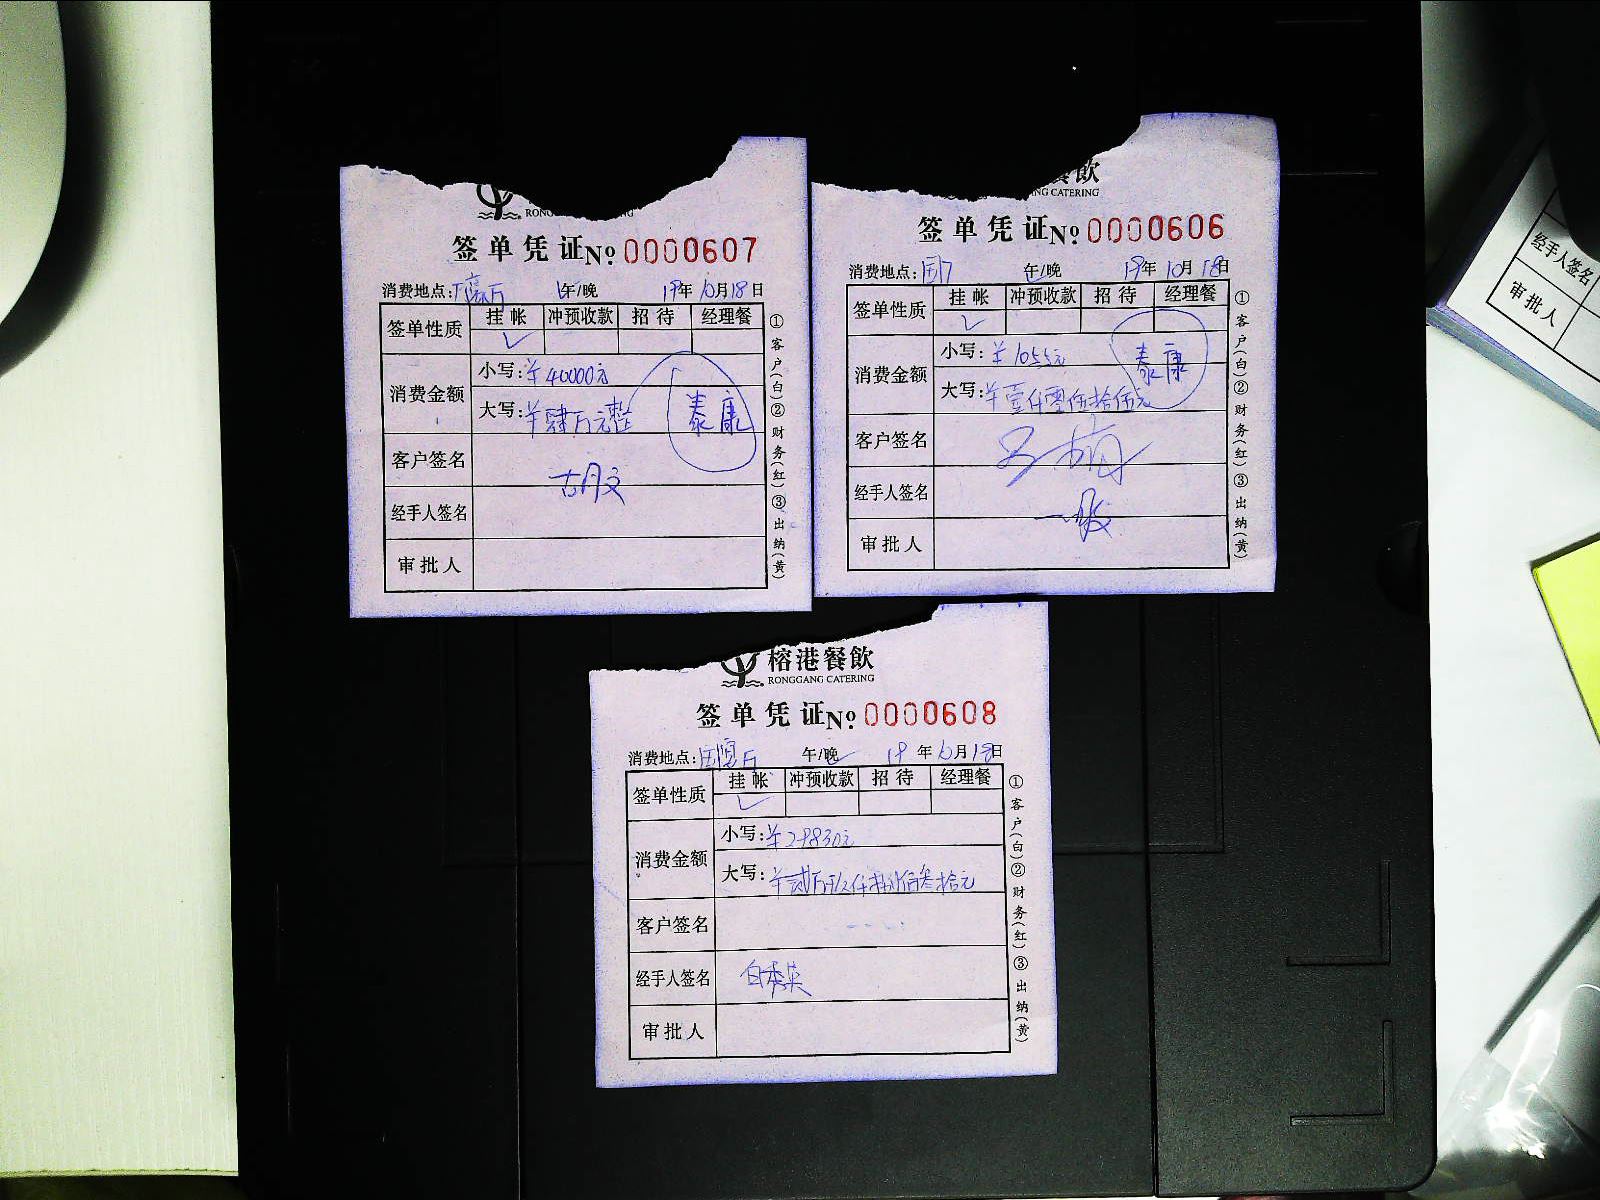 RONG
签单凭证№0000607
消费地点: 午/晚 19年10月18日
签单性质 挂帐 冲预收款 招待 经理餐
消费金额 小写:¥40000元
大写:¥肆万元整
泰康
客户签名
经手人签名
审批人
①客户(白)②财务(红)③出纳(黄)
餐飲
NG CATERING
签单凭证№0000606
消费地点: 午/晚 19年10月18日
签单性质 挂帐 冲预收款 招待 经理餐
消费金额 小写:¥1055元
大写:¥壹仟零伍拾伍元
泰康
客户签名
经手人签名
审批人
①客户(白)②财务(红)③出纳(黄)
榕港餐飲
RONGGANG CATERING
签单凭证№0000608
消费地点: 午/晚 19年10月18日
签单性质 挂帐 冲预收款 招待 经理餐
消费金额 小写:¥29830元
大写:¥贰万玖仟捌佰叁拾元
客户签名
经手人签名 白秀英
审批人
①客户(白)②财务(红)③出纳(黄)
经手人签名
审批人